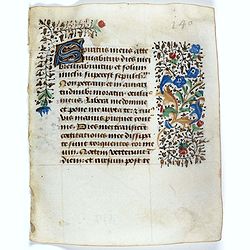 240
Spiritus meus atte
nuabitur dies mei
breviabuntur et solum
michi superest sepulcrum
Non peccavi et in amari
tudinibus moratur oculus
meus. Libera me domine
et pone me iuxta te et cui
us vis manus pugnet contra
me. Dies mei transierunt
cogitationes mee dissipa
te sunt torquentes cor me
um. Noctem verterunt in
diem et rursum post te